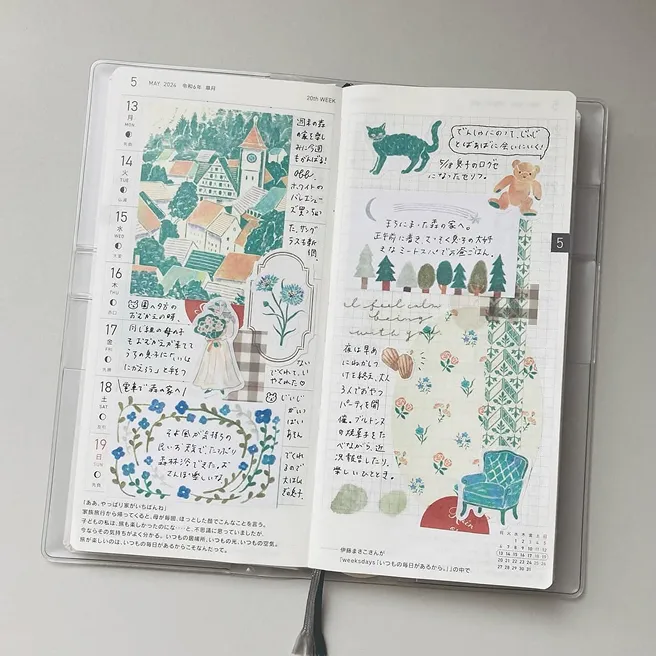 5 MAY 2024 令和6年 皐月
20th WEEK
13
月
MON
14
火
TUE
15
水
WED
16
木
THU
17
金
FRI
18
土
SAT
19
日
SUN
週末の森
の家を楽し
みに今週
もがんばる!
ホワイトの
バレエシュー
ズ買っちゃっ
た。サング
ラスも新
調。
園へ夕方の
おむかえの時、
同じ組の母の子
もおむかえが来てて
うちの息子に「いっしょ
にかえろう」と手をつ
ないで
くれて、い
やされた
\電車で森の家へ/
そよ風が気持ちの
良いお天気で、たっぷり
森林浴できた。お
さんぽ楽しいな。
じぃじ
がいっ
ぱい
あそん
でくれ
るので
大はしゃ
ぎの息子。
「ああ、やっぱり家がいちばんね」
家族旅行から帰ってくると、母が毎回、ほっとした顔でこんなことを言う。
子どもの私は、旅も楽しかったのにな……と、不思議に思っていましたが、
今ならその気持ちがよく分かる。いつもの居場所、いつもの光、いつもの空気。
旅が楽しいのは、いつもの毎日があるからこそなんだって。
でんしゃにのって、じぃじ
とばぁばに会いにいく!
5/18 息子のログセ
になったセリフ。
まちにまった森の家へ。
正午前に着き、さっそく息子の大好
きなミートスパでお昼ごはん。
5
I feel calm
being
with you.
夜は早め
にねかしつ
けを終え、大人
3人でおやつ
パーティを開
催。ブルトンヌ
の焼菓子をた
べながら、近
況報告したり。
楽しいひととき。
伊藤まさこさんが
「weeksdays「いつもの毎日があるから。」」の中で
月 火 水 木 金 土 日
1 2 3 4 5
6 7 8 9 10 11 12
13 14 15 16 17 18 19
20 21 22 23 24 25 26
27 28 29 30 31